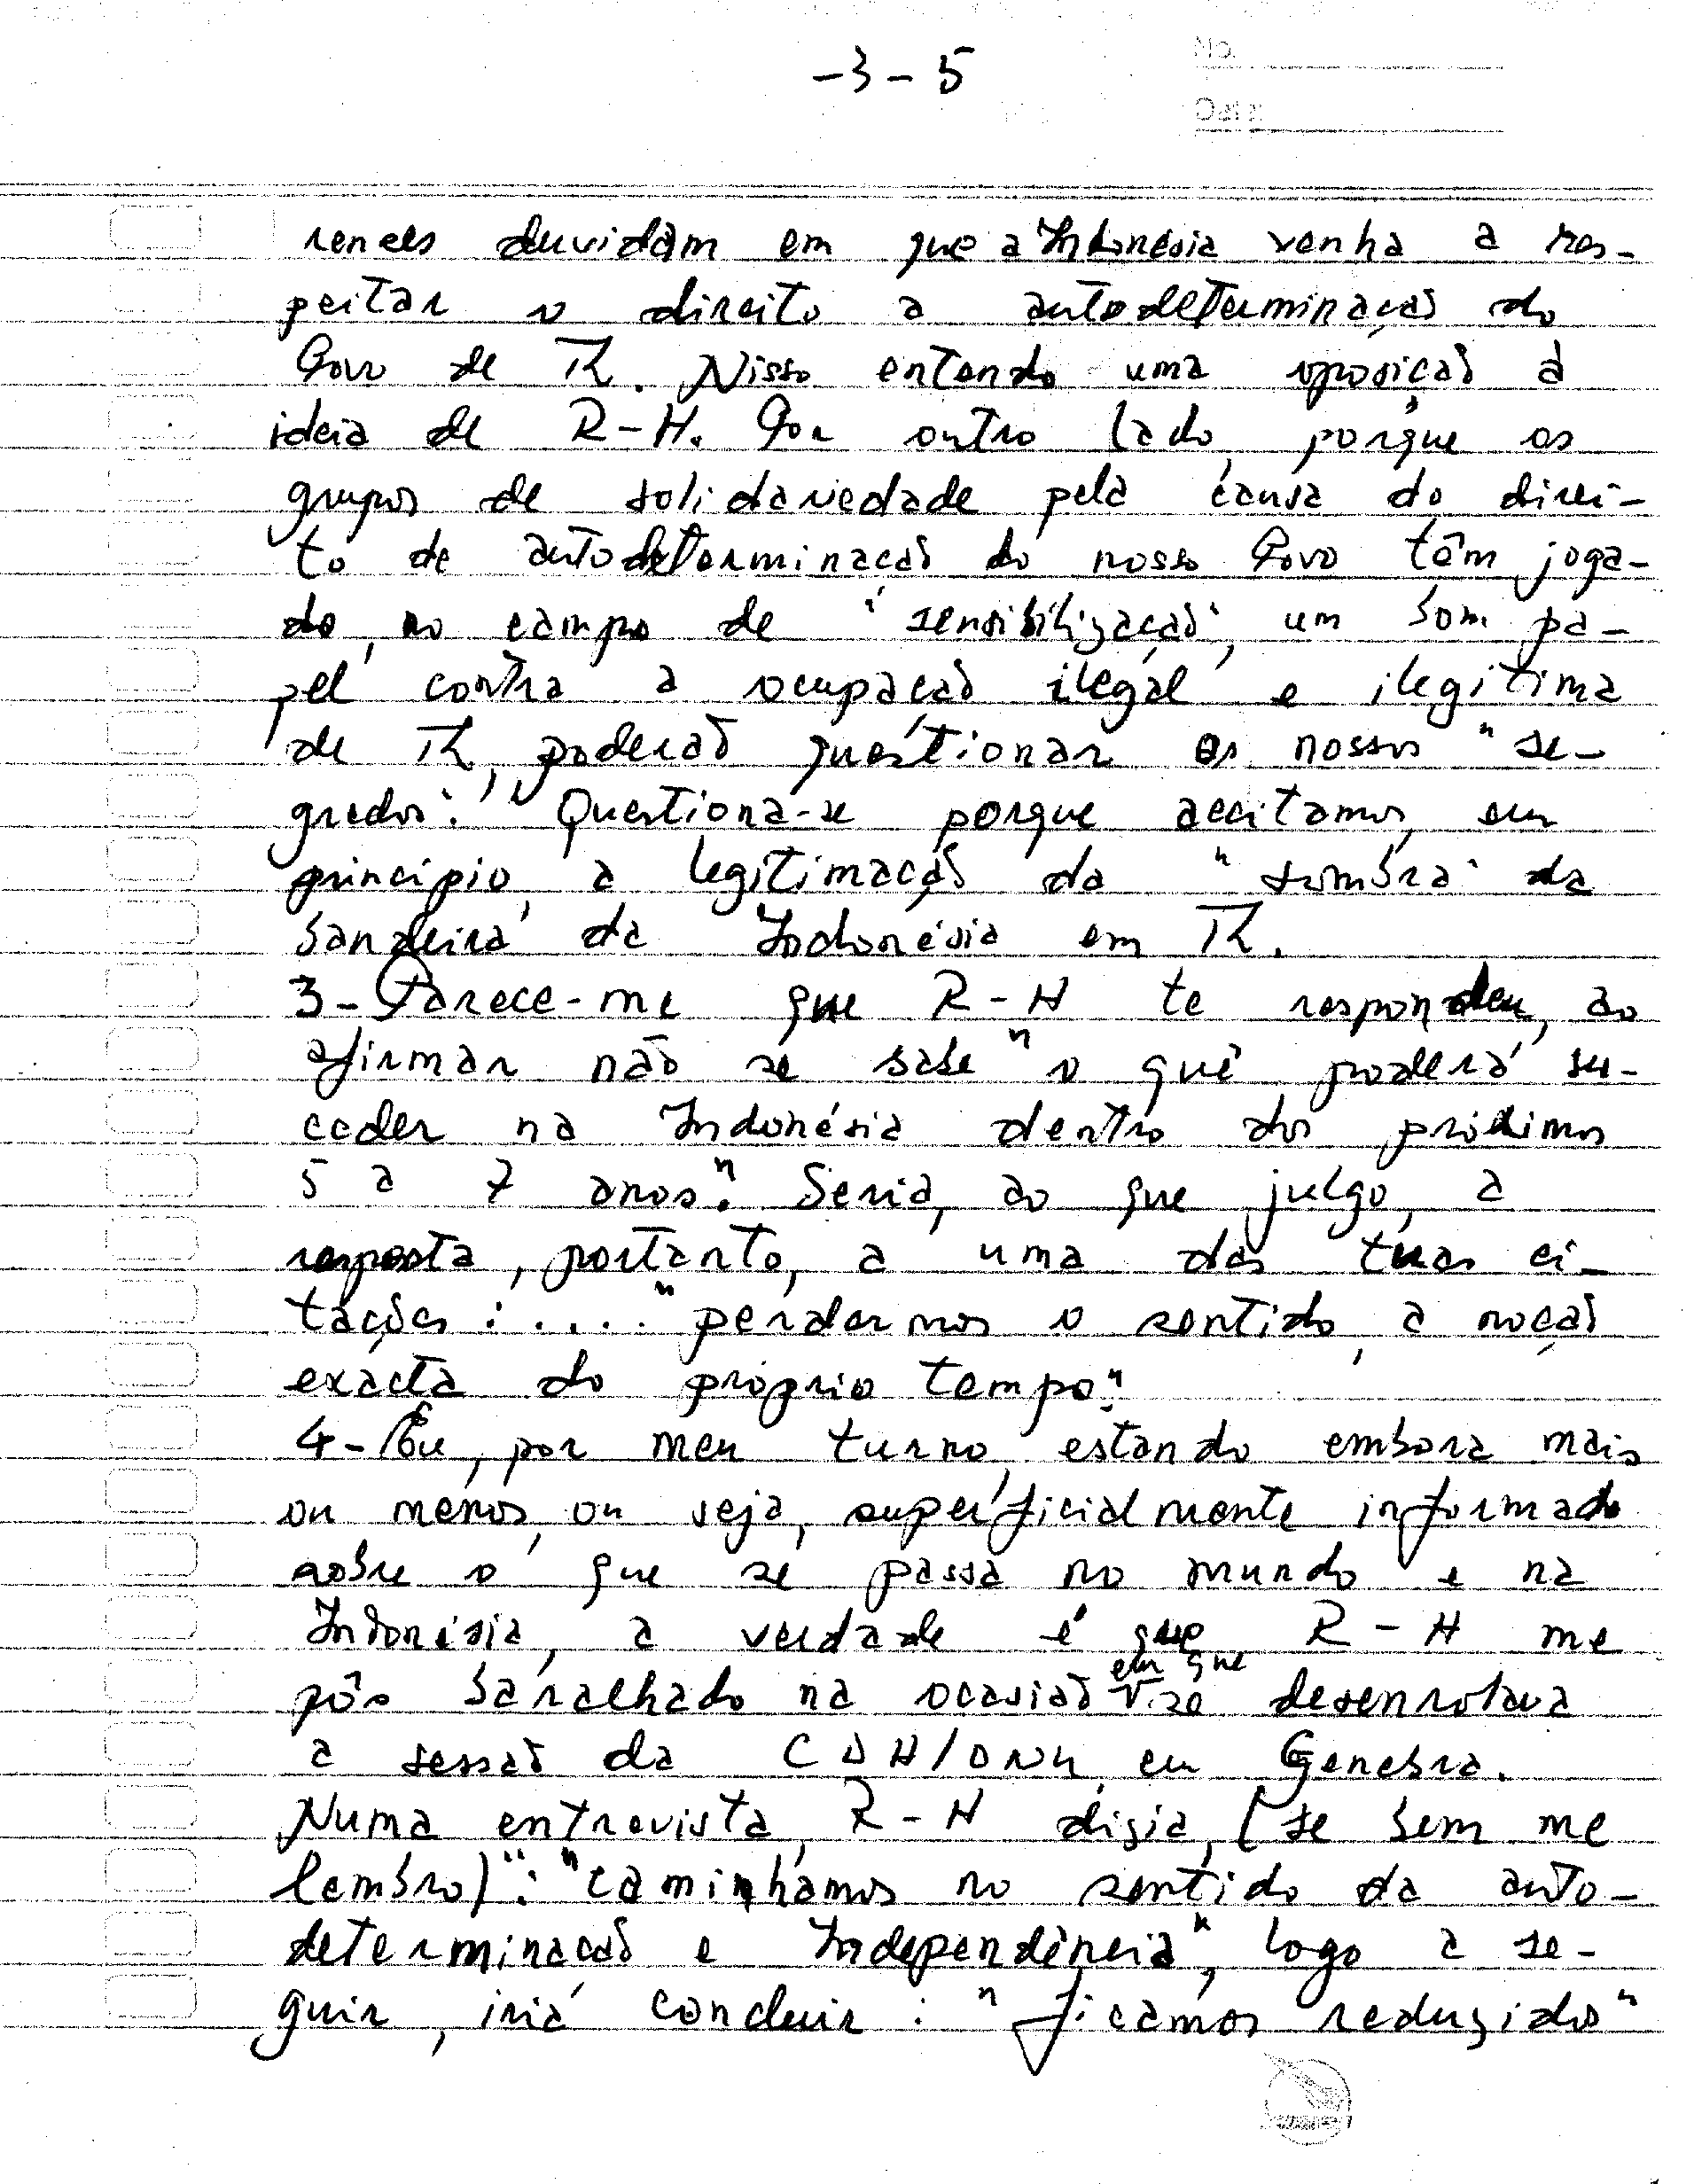 -3-5
No.
Date
renses duvidam em que a Indonésia venha a res-
peitar o direito a autodeterminação do
Povo de TL. Nisso entendo uma oposição à
ideia de R-H. Por outro lado, porque os
grupos de solidariedade pela causa do direi-
to de autodeterminação do nosso Povo têm joga-
do, no campo de "sensibilização", um bom pa-
pel contra a ocupação ilegal e ilegítima
de TL, poderão questionar os nossos "se-
gredos". Questiona-se porque aceitamos, em
princípio, a legitimação da "sombra" da
bandeira da Indonésia em TL.
3- Parece-me que R-H te respondeu, ao
afirmar não se sabe "o quê poderá su-
ceder na Indonésia dentro dos próximos
5 a 7 anos". Seria, ao que julgo, a
resposta, portanto, a uma das tuas ci-
tações: .... "perdermos o sentido, a noção
exacta do próprio tempo".
4- Eu, por meu turno, estando embora mais
ou menos, ou seja, superficialmente informado
sobre o que se passa no mundo e na
Indonésia, a verdade é que R-H me
pôs baralhado na ocasião em que se desenrolava
a sessão da CDH/ONU, em Genebra.
Numa entrevista, R-H disia, (se bem me
lembro)": "caminhamos no sentido da auto-
determinação e Independência", logo a se-
guir, iria concluir: "ficamos reduzidos"